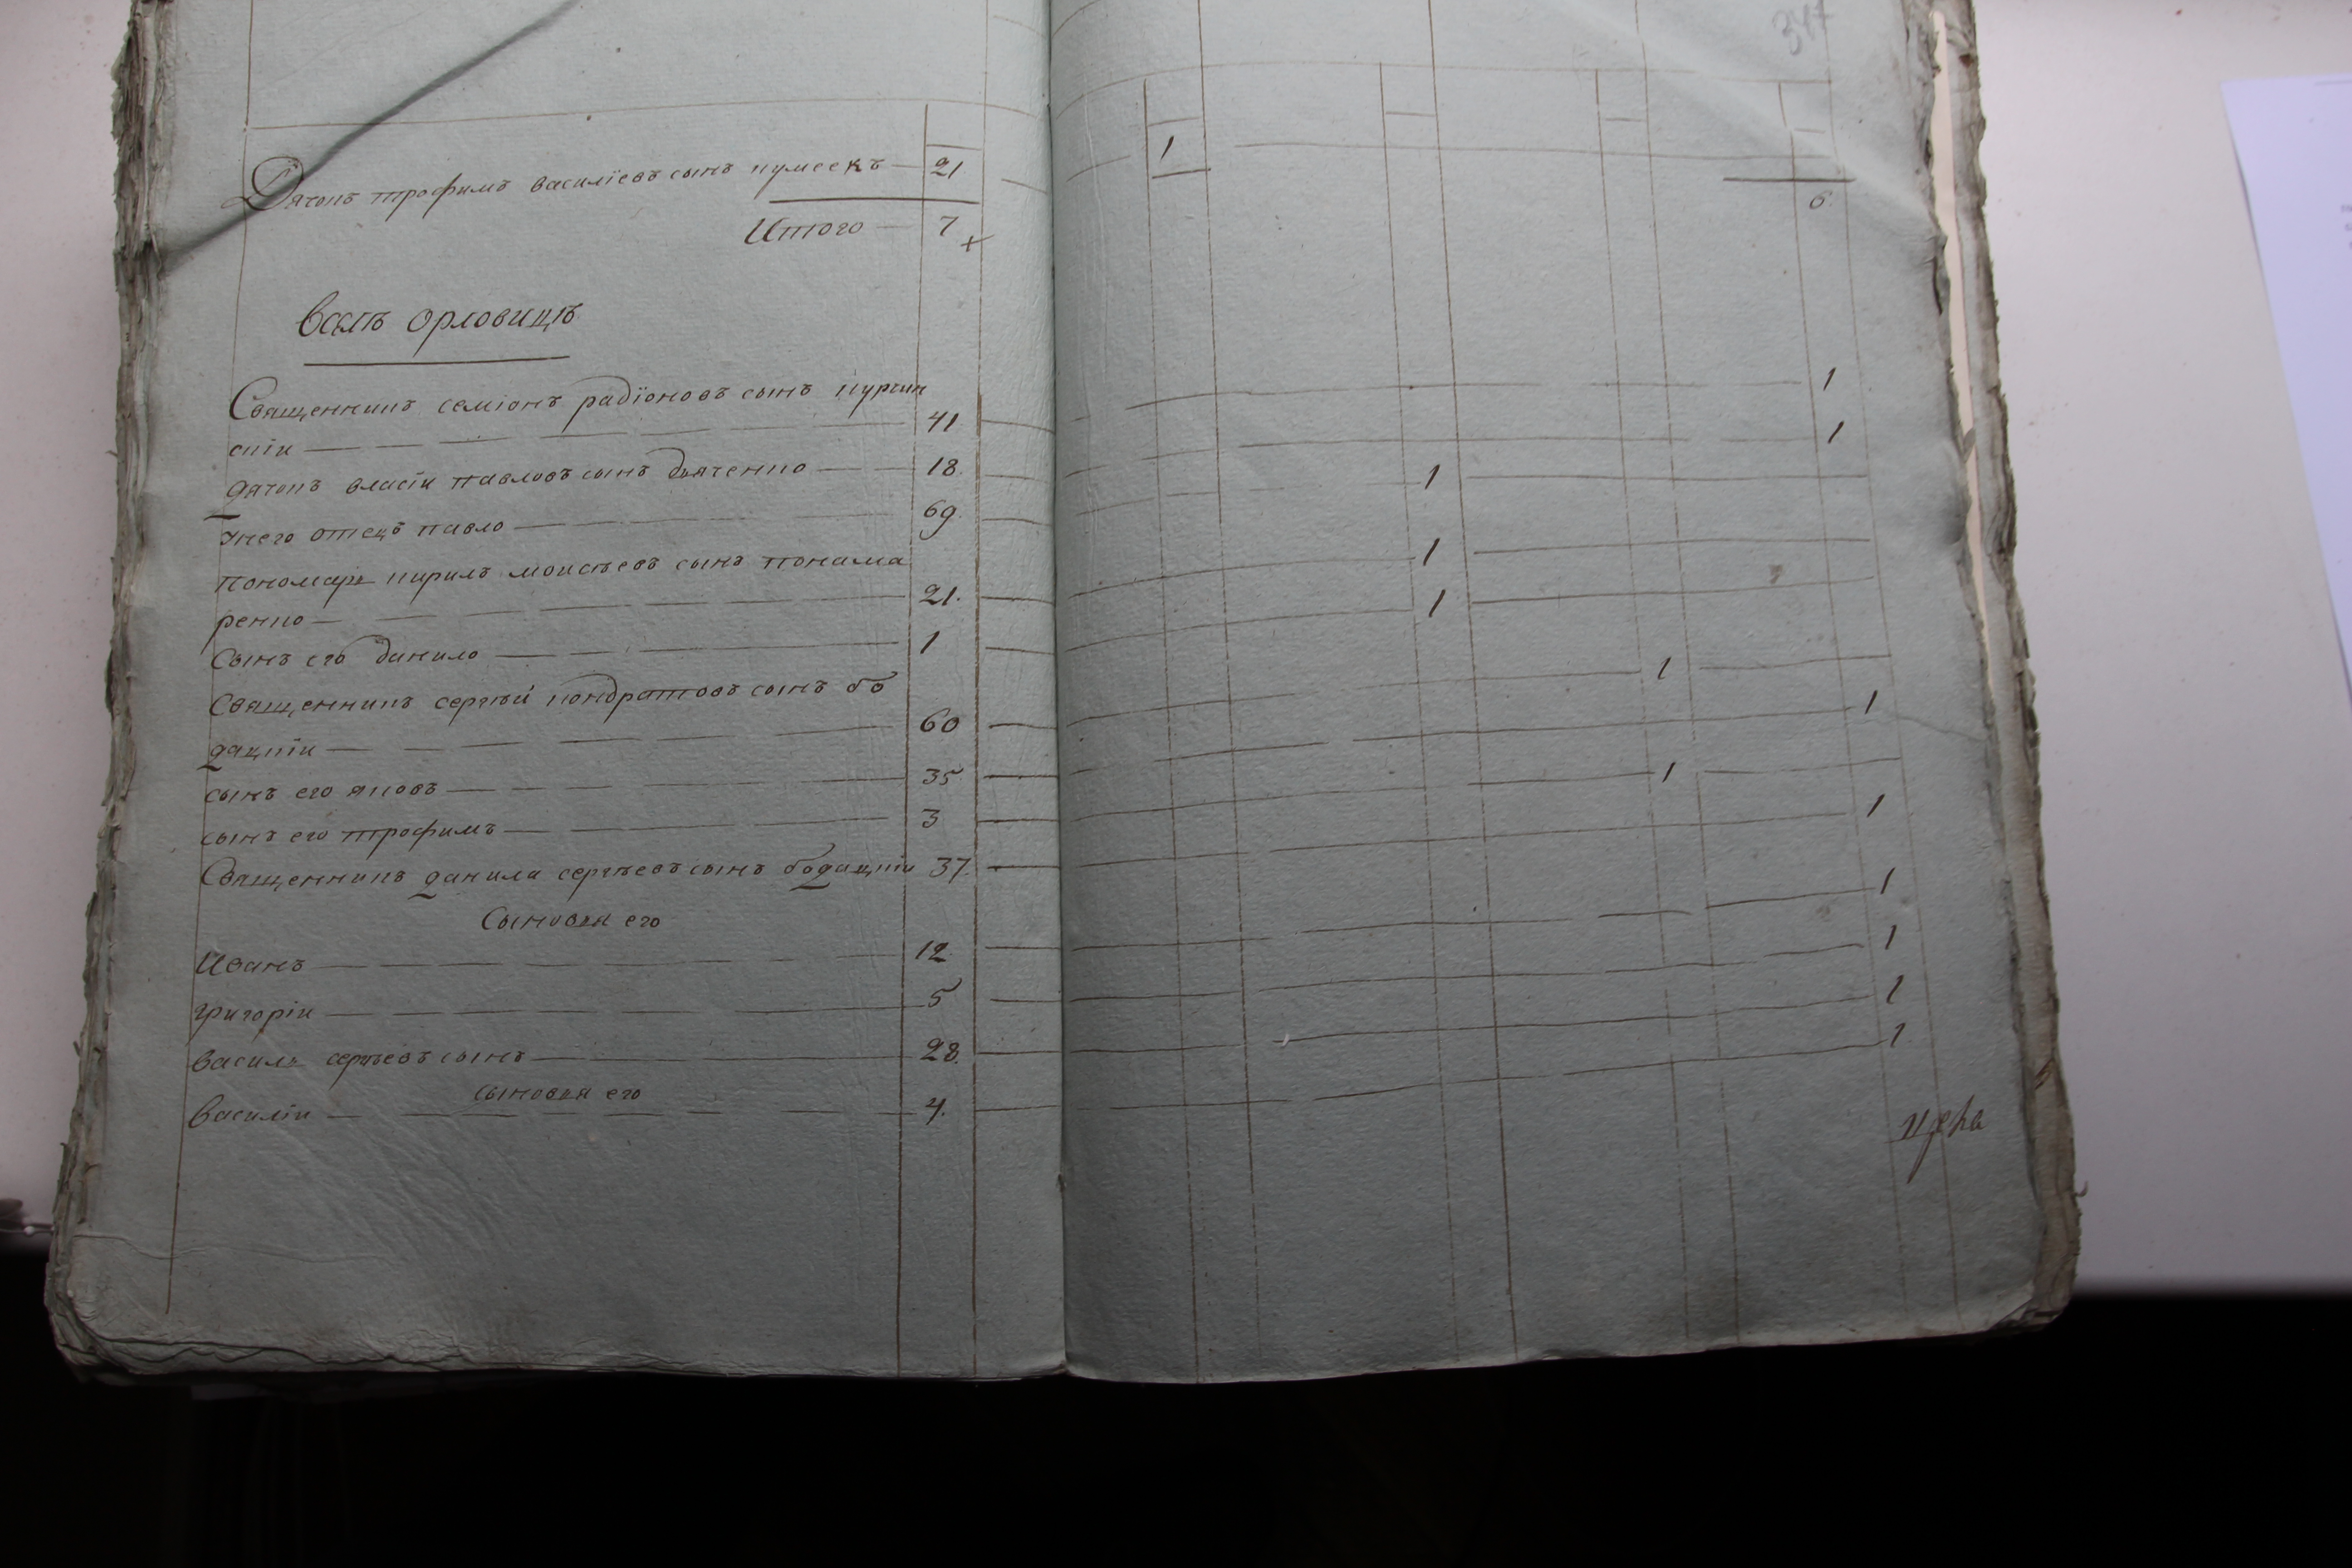 347
Дячокъ трофимъ василїевъ сынъ кумеекъ — 21 1
6
Итого — 7
всѣлѣ орловицѣ
Священникъ семіонъ радїоновъ сынъ курчин
скіи — 41 1
дячокъ власіи павловъ сынъ дяченко — 18. 1
унего отецъ павло — 69. 1
пономарь кирилъ моисѣевъ сынъ понама
ренко — 21. 1
Сынъ его данило — 1 1
Священникъ сергѣй кондратовъ сынъ бо
дацкіи — 60 1
сынъ его яковъ — 35 1
сынъ его трофимъ — 3 1
Священникъ данила сергѣевъ сынъ бодацкіи 37. 1
Сыновья его
Иванъ — 12 1
григоріи — 5 1
василь сергѣевъ сынъ — 28. 1
сыновья его
василіи — 4. 1